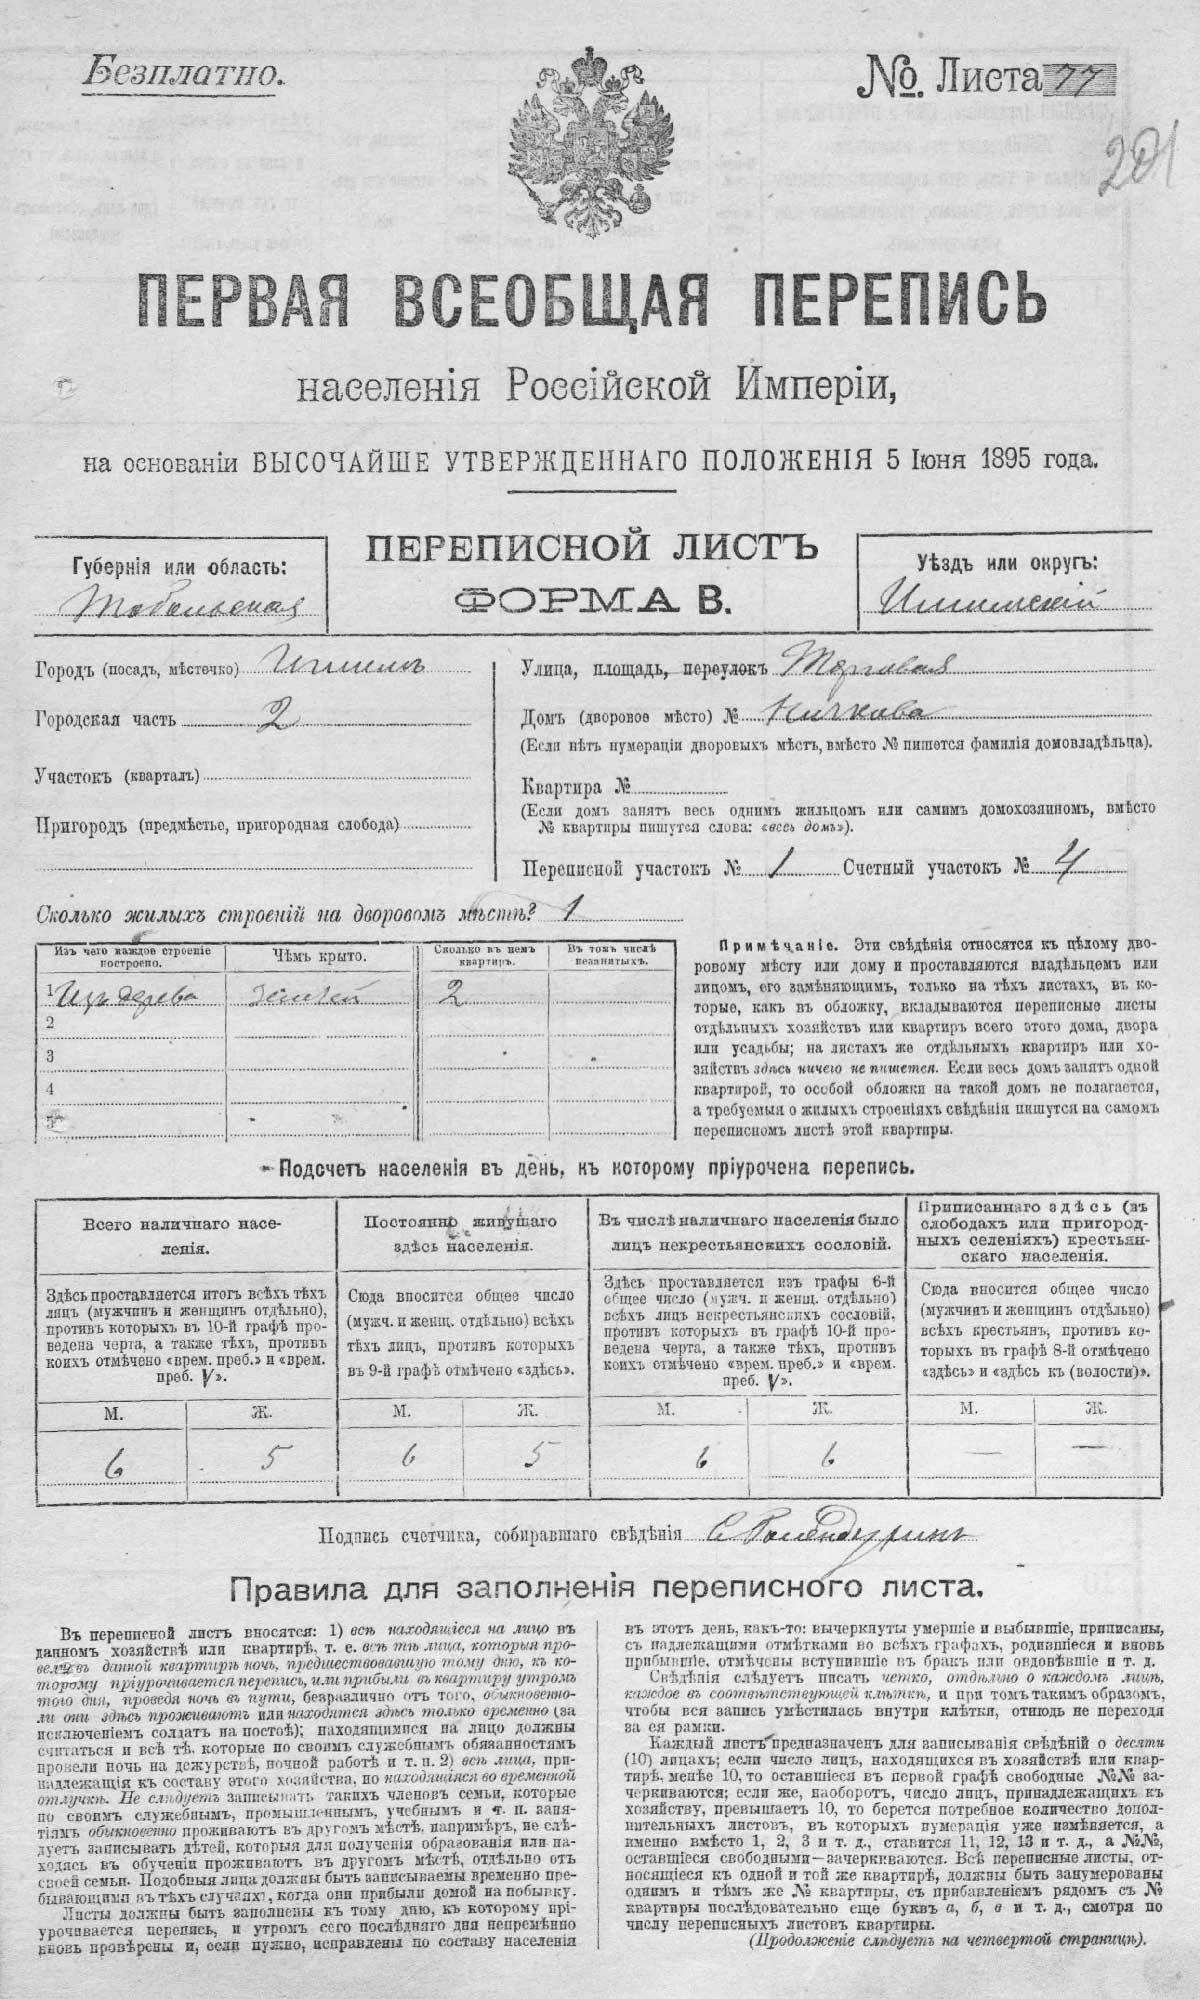 Безплатно.
№. Листа 77
201
ПЕРВАЯ ВСЕОБЩАЯ ПЕРЕПИСЬ
населенія Россійской Имперіи,
на основаніи ВЫСОЧАЙШЕ УТВЕРЖДЕННАГО ПОЛОЖЕНІЯ 5 Іюня 1895 года.
Губернія или область:
Тобольская
ПЕРЕПИСНОЙ ЛИСТЪ
ФОРМА В.
Уѣздъ или округъ:
Ишимскій
Городъ (посадъ, мѣстечко) Ишимъ
Городская часть 2
Участокъ (кварталъ)
Пригородъ (предмѣстье, пригородная слобода)
Улица, площадь, переулокъ Торговая
Домъ (дворовое мѣсто) №
(Если нѣтъ нумераціи дворовыхъ мѣстъ, вмѣсто № пишется фамилія домовладѣльца).
Квартира №
(Если домъ занятъ весь однимъ жильцомъ или самимъ домохозяиномъ, вмѣсто
№ квартиры пишутся слова: «весь домъ»).
Переписной участокъ № 1 Счетный участокъ № 4
Сколько жилыхъ строеній на дворовомъ мѣстѣ? 1
Изъ чего каждое строеніе
построено.
Чѣмъ крыто.
Сколько въ немъ
квартиръ.
Въ томъ числѣ
незанятыхъ.
1 Изъ дерева землей 2
2
3
4
5
Примѣчаніе. Эти свѣдѣнія относятся къ цѣлому дво-
ровому мѣсту или дому и проставляются владѣльцемъ или
лицомъ, его замѣняющимъ, только на тѣхъ листахъ, въ ко-
торые, какъ въ обложку, вкладываются переписные листы
отдѣльныхъ хозяйствъ или квартиръ всего этого дома, двора
или усадьбы; на листахъ же отдѣльныхъ квартиръ или хо-
зяйствъ здѣсь ничего не пишется. Если весь домъ занятъ одной
квартирой, то особой обложки на такой домъ не полагается,
а требуемыя о жилыхъ строеніяхъ свѣдѣнія пишутся на самомъ
переписномъ листѣ этой квартиры.
Подсчетъ населенія въ день, къ которому пріурочена перепись.
Всего наличнаго насе-
ленія.
Здѣсь проставляется итогъ всѣхъ тѣхъ
лицъ (мужчинъ и женщинъ отдѣльно),
противъ которыхъ въ 10-й графѣ про-
ведена черта, а также тѣхъ, противъ
коихъ отмѣчено «врем. преб.» и «врем.
преб. V».
Постоянно живущаго
здѣсь населенія.
Сюда вносится общее число
(мужч. и женщ. отдѣльно) всѣхъ
тѣхъ лицъ, противъ которыхъ
въ 9-й графѣ отмѣчено «здѣсь».
Въ числѣ наличнаго населенія было
лицъ некрестьянскихъ сословій.
Здѣсь проставляется изъ графы 6-й
общее число (мужч. и женщ. отдѣльно)
всѣхъ лицъ некрестьянскихъ сословій,
противъ которыхъ въ графѣ 10-й про-
ведена черта, а также тѣхъ, противъ
коихъ отмѣчено «врем. преб.» и «врем.
преб. V».
Приписаннаго здѣсь (въ
слободахъ или пригород-
ныхъ селеніяхъ) крестьян-
скаго населенія.
Сюда вносится общее число
(мужчинъ и женщинъ отдѣльно)
всѣхъ крестьянъ, противъ ко-
торыхъ въ графѣ 8-й отмѣчено
«здѣсь» и «здѣсь къ (волости)».
М. Ж. М. Ж. М. Ж. М. Ж.
6 5 6 5 6 6 — —
Подпись счетчика, собиравшаго свѣдѣнія
Правила для заполненія переписного листа.
Въ переписной листъ вносятся: 1) всѣ находящіеся на лицо въ
данномъ хозяйствѣ или квартирѣ, т. е. всѣ тѣ лица, которыя про-
вели въ данной квартирѣ ночь, предшествовавшую тому дню, къ ко-
торому пріурочивается перепись, или прибыли въ квартиру утромъ
того дня, проведя ночь въ пути, безразлично отъ того, обыкновенно-
ли они здѣсь проживаютъ или находятся здѣсь только временно (за
исключеніемъ солдатъ на постоѣ); находящимися на лицо должны
считаться и всѣ тѣ, которые по своимъ служебнымъ обязанностямъ
провели ночь на дежурствѣ, ночной работѣ и т. п. 2) всѣ лица, при-
надлежащія къ составу этого хозяйства, но находящіяся во временной
отлучкѣ. Не слѣдуетъ записывать такихъ членовъ семьи, которые
по своимъ служебнымъ, промышленнымъ, учебнымъ и т. п. заня-
тіямъ обыкновенно проживаютъ въ другомъ мѣстѣ, напримѣръ, не слѣ-
дуетъ записывать дѣтей, которыя для полученія образованія или на-
ходясь въ обученіи проживаютъ въ другомъ мѣстѣ, отдѣльно отъ
своей семьи. Подобныя лица должны быть записываемы временно пре-
бывающими въ тѣхъ случаяхъ, когда они прибыли домой на побывку.
Листы должны быть заполнены къ тому дню, къ которому прі-
урочивается перепись, и утромъ сего послѣдняго дня непремѣнно
вновь провѣрены и, если нужно, исправлены по составу населенія
въ этотъ день, какъ-то: вычеркнуты умершіе и выбывшіе, приписаны,
съ надлежащими отмѣтками во всѣхъ графахъ, родившіеся и вновь
прибывшіе, отмѣчены вступившіе въ бракъ или овдовѣвшіе и т. д.
Свѣдѣнія слѣдуетъ писать четко, отдѣльно о каждомъ лицѣ,
каждое въ соотвѣтствующей клѣткѣ, и при томъ такимъ образомъ,
чтобы вся запись умѣстилась внутри клѣтки, отнюдь не переходя
за ея рамки.
Каждый листъ предназначенъ для записыванія свѣдѣній о десяти
(10) лицахъ; если число лицъ, находящихся въ хозяйствѣ или квар-
тирѣ, менѣе 10, то оставшіеся въ первой графѣ свободные №№ за-
черкиваются; если же, наоборотъ, число лицъ, принадлежащихъ къ
хозяйству, превышаетъ 10, то берется потребное количество допол-
нительныхъ листовъ, въ которыхъ нумерація уже измѣняется, а
именно вмѣсто 1, 2, 3 и т. д., ставится 11, 12, 13 и т. д., а №№,
оставшіеся свободными—зачеркиваются. Всѣ переписные листы, от-
носящіеся къ одной и той же квартирѣ, должны быть занумерованы
однимъ и тѣмъ же № квартиры, съ прибавленіемъ рядомъ съ №
квартиры послѣдовательно еще буквъ а, б, в и т. д., смотря по
числу переписныхъ листовъ квартиры.
(Продолженіе слѣдуетъ на четвертой страницѣ).